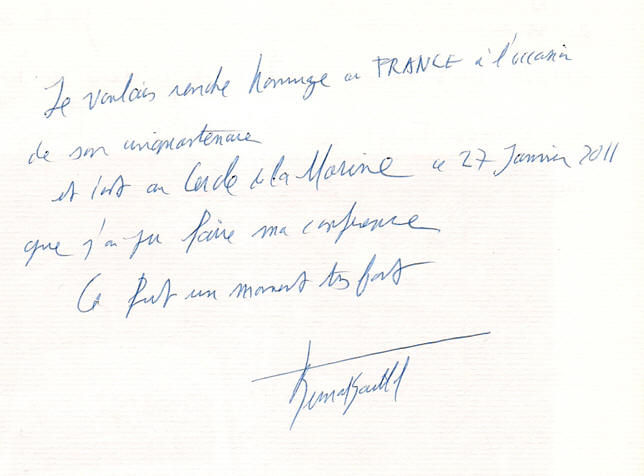 Je voulais rendre hommage au FRANCE à l'occasion
de son cinquantenaire
et c'est au Cercle de la Marine ce 27 Janvier 2011
que j'ai pu faire ma conférence
Ce fut un moment très fort